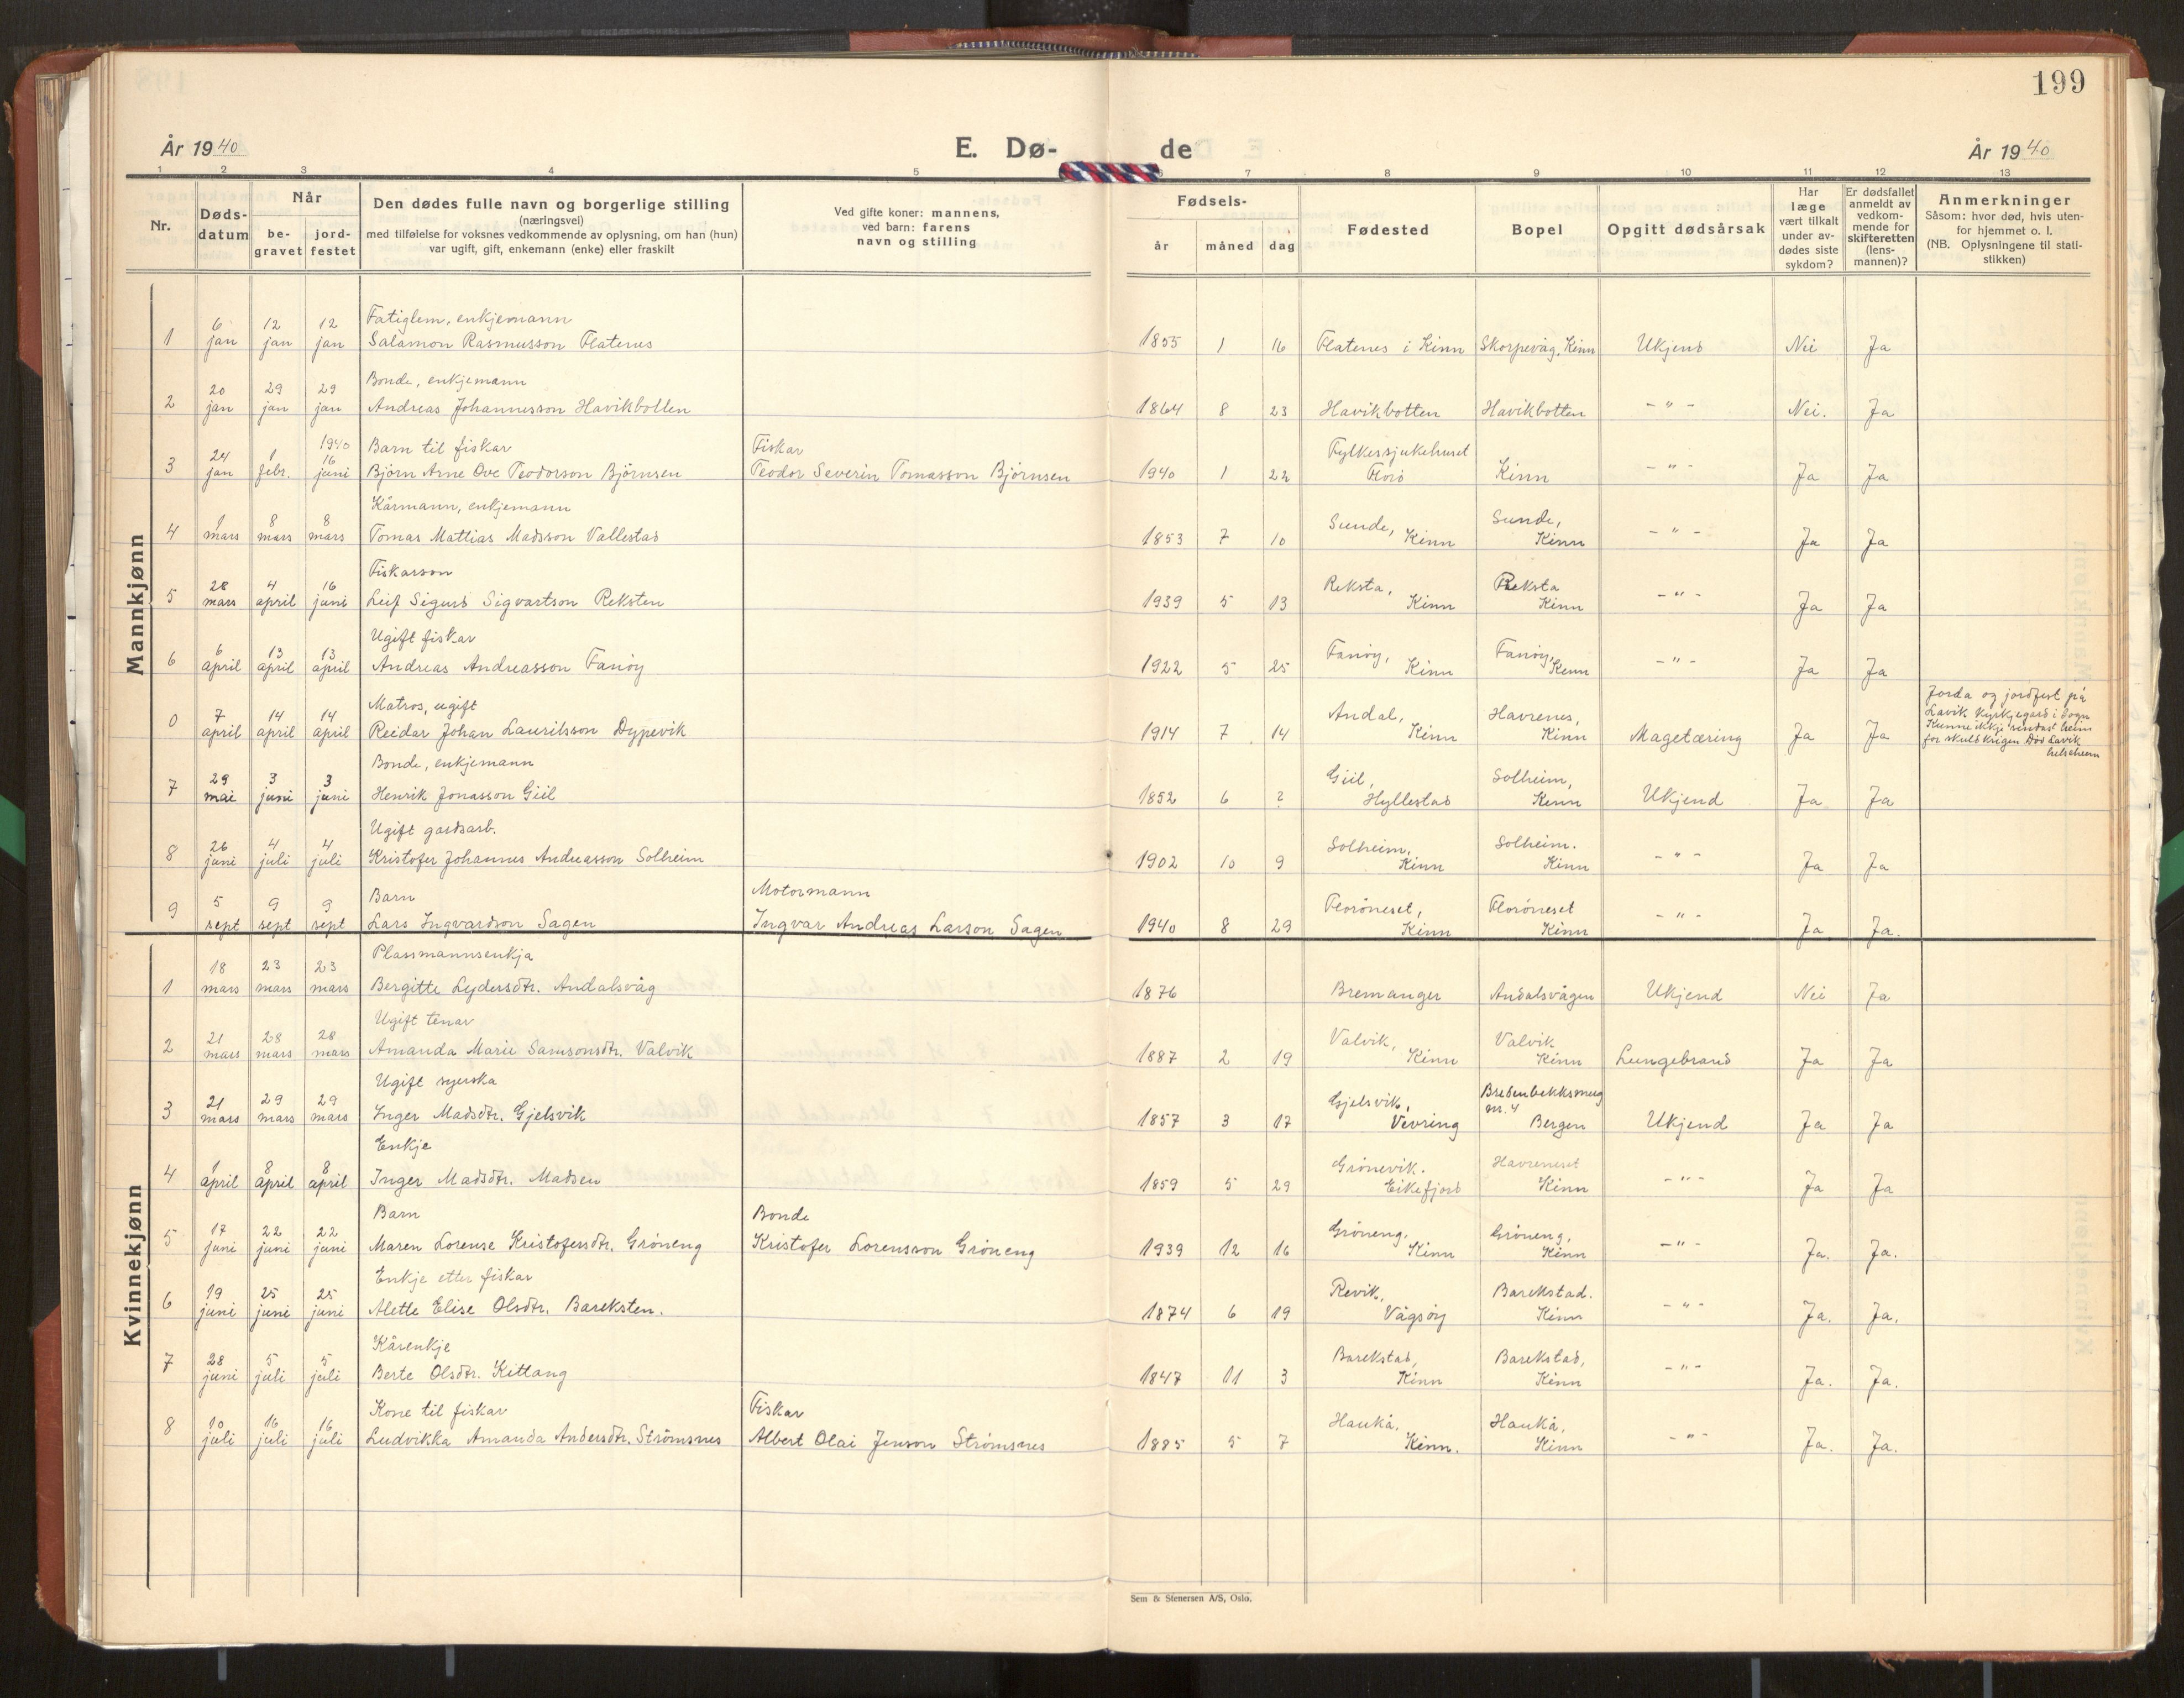 199
År 1940
E. Dø-
de
År 1940
1 2 3 4 5 6 7 8 9 10 11 12 13
Nr.
Døds-
datum
Når
be-
gravet
jord-
festet
Den dødes fulle navn og borgerlige stilling
(næringsvei)
med tilføielse for voksnes vedkommende av oplysning, om han (hun)
var ugift, gift, enkemann (enke) eller fraskilt
Ved gifte koner: mannens,
ved barn: farens
navn og stilling
Fødsels-
år måned dag
Fødested
Bopel
Opgitt dødsårsak
Har
læge
vært tilkalt
under av-
dødes siste
sykdom?
Er dødsfallet
anmeldt av
vedkom-
mende for
skifteretten
(lens-
mannen)?
Anmerkninger
Såsom: hvor død, hvis uten-
for hjemmet o. l.
(NB. Oplysningene til stati-
stikken)
Mannkjønn
6 12 12 Fatiglem, enkjemann
1 jan jan jan Salamon Rasmusson Flatenes 1855 1 16 Flatenes i Kinn Skorpevåg, Kinn Ukjend Nei Ja
20 29 29 Bonde, enkjemann
2 jan jan jan Andreas Johannesson Havikbotten 1864 8 23 Havikbotten Havikbotten - " - Nei. Ja
1940 Barn til fiskar Fiskar Fylkessjukehuset
3 24 jan 1 febr. 16 juni Bjørn Arne Ove Teodorson Bjørnsen Teodor Severin Tomasson Bjørnsen 1940 1 22 Florø Kinn - " - Ja Ja
1 8 8 Kårmann, enkjemann Sunde, Sunde,
4 mars mars mars Tomas Mattias Madsson Vallestad 1853 7 10 Kinn Kinn - " - Ja Ja
28 4 16 Fiskarson Reksta, Reksta
5 mars april juni Leif Sigurd Sigvartson Reksten 1939 5 13 Kinn Kinn - " - Ja Ja
6 13 13 Ugift fiskar Fanøy, Fanøy,
6 april april april Andreas Andreasson Fanøy 1922 5 25 Kinn Kinn - " - Ja Ja
7 14 14 Matros, ugift Andal, Havrenes,
0 april april april Reidar Johan Lauritsson Dypevik 1914 7 14 Kinn Kinn Magetæring Ja Ja
Jorda og jordfest på
Lavik Kyrkjegard i Sogn
Kunne ikkje sendast heim
for skuld krigen Død Lavik
helseheim
29 3 3 Bonde, enkjemann Giil, Solheim,
7 mai juni juni Henrik Jonasson Giil 1852 6 2 Hyllestad Kinn Ukjend Ja Ja
26 4 4 Ugift gardsarb. Solheim, Solheim.
8 juni juli juli Kristofer Johannes Andreasson Solheim 1902 10 9 Kinn Kinn - " - Ja Ja
5 9 9 Barn Motormann Florøneset, Florøneset
9 sept sept sept Lars Ingvardson Sagen Ingvar Andreas Larson Sagen 1940 8 29 Kinn Kinn - " - Ja Ja.
Kvinnekjønn
18 23 23 Plassmannsenkja
1 mars mars mars Bergitte Lydersdtr. Andalsvåg 1876 Bremanger Andalsvågen Ukjend Nei Ja
21 28 28 Ugift tenar Valvik, Valvik
2 mars mars mars Amanda Marie Samsonsdtr. Valvik 1887 2 19 Kinn Kinn Lungebrand Ja Ja
21 29 29 Ugift syerska Gjelsvik, Bredenbekksmug nr. 4
3 mars mars mars Inger Madsdtr. Gjelsvik 1857 3 17 Vevring Bergen Ukjend Ja Ja
1 8 8 Enkje Grønevik. Havreneset
4 april april april Inger Madsdtr. Madsen 1859 5 29 Eikefjord Kinn - " - Ja Ja
17 22 22 Barn Bonde Grøneng. Grøneng,
5 juni juni juni Maren Lorense Kristofersdtr. Grøneng Kristofer Lorensson Grøneng 1939 12 16 Kinn Kinn - " - Ja. Ja.
19 25 25 Enkje etter fiskar Revik, Barekstad.
6 juni juni juni Alette Elise Olsdtr. Bareksten. 1874 6 19 Vågsøy Kinn - " - Ja. Ja.
28 5 5 Kårenkje Barekstad, Barekstad,
7 juni juli juli Berte Olsdtr. Kittang 1847 11 3 Kinn Kinn - " - Ja. Ja.
10 16 16 Kone til fiskar Fiskar Haukå, Haukå,
8 juli juli juli Ludvikka Amanda Andersdtr. Strømsnes Albert Olai Jenson Strømsnes 1885 5 7 Kinn. Kinn - " - Ja. Ja.
Sem & Stenersen A/S, Oslo.